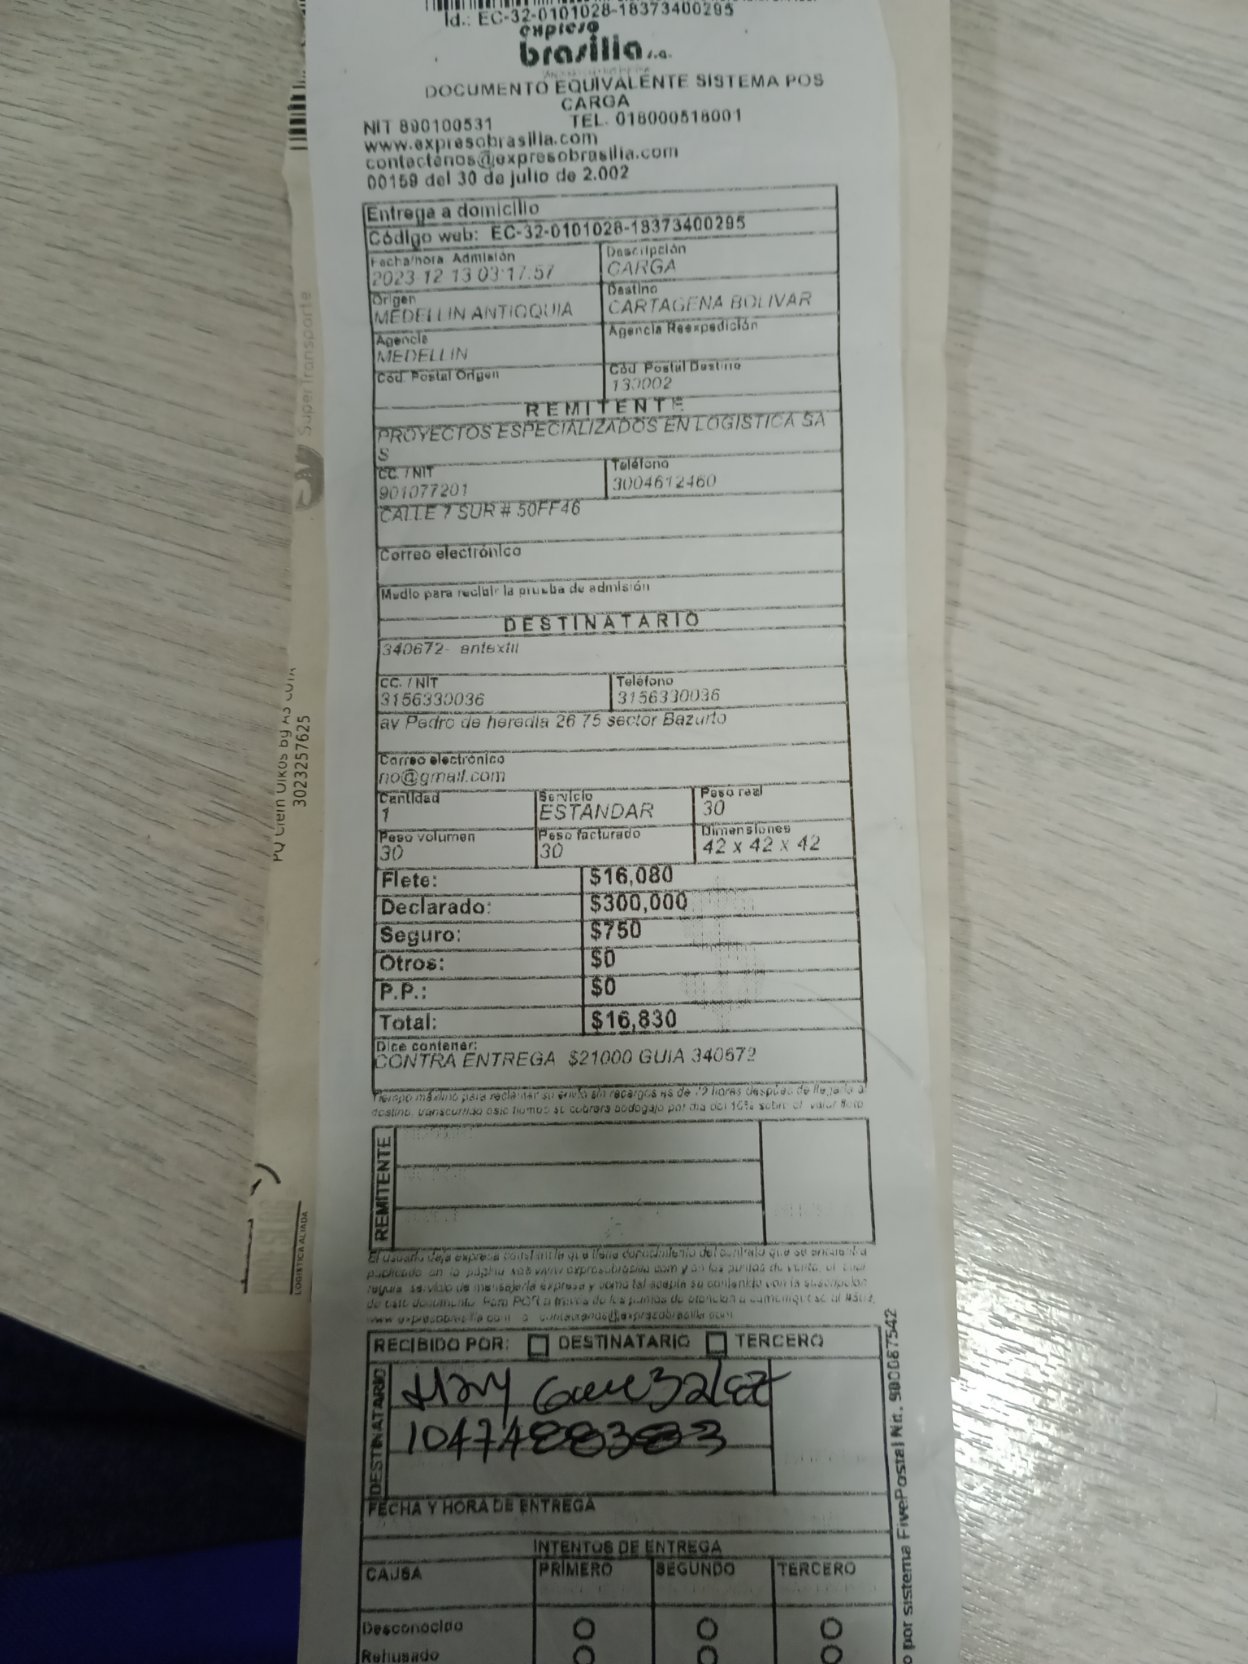 Id.: EC-32-0101028-18373400295
expreso
brasilia s.a.
DOCUMENTO EQUIVALENTE SISTEMA POS
CARGA
NIT 890100531 TEL. 018000518001
www.expresobrasilia.com
contactenos@expresobrasilia.com
00159 del 30 de julio de 2.002
Entrega a domicilio
Código web: EC-32-0101028-18373400295
Fecha/hora Admisión Descripción
2023-12-13 03:17:57 CARGA
Origen Destino
MEDELLIN ANTIOQUIA CARTAGENA BOLIVAR
Agencia Agencia Reexpedición
MEDELLIN
Cód. Postal Origen Cód. Postal Destino
130002
REMITENTE
PROYECTOS ESPECIALIZADOS EN LOGISTICA SA
S
CC. / NIT Teléfono
901077201 3004612460
CALLE 7 SUR # 50FF46
Correo electrónico
Medio para recibir la prueba de admisión
DESTINATARIO
340672- antexill
CC. / NIT Teléfono
3156330036 3156330036
av Pedro de heredia 26 75 sector Bazurto
Correo electrónico
no@gmail.com
Cantidad Servicio Peso real
1 ESTANDAR 30
Peso volumen Peso facturado Dimensiones
30 30 42 x 42 x 42
Flete: $16,080
Declarado: $300,000
Seguro: $750
Otros: $0
P.P.: $0
Total: $16,830
Dice contener:
CONTRA ENTREGA $21000 GUIA 340672
Tiempo máximo para reclamar su envío sin recargos es de 72 horas después de llegada al
destino, transcurrido este tiempo se cobrará bodegaje por día del 10% sobre el valor flete
REMITENTE
El usuario deja expresa constancia que tiene conocimiento del contrato que se encuentra
publicado en la página web www.expresobrasilia.com y en los puntos de venta, el cual
regula servicio de mensajería expresa y como tal acepta su contenido con la suscripción
de este documento. Para PQR a través de los puntos de atención o comuníquese al
www.expresobrasilia.com o contactenos@expresobrasilia.com
RECIBIDO POR: DESTINATARIO TERCERO
DESTINATARIO
1047488383
FECHA Y HORA DE ENTREGA
INTENTOS DE ENTREGA
CAUSA PRIMERO SEGUNDO TERCERO
Desconocido
Rehusado
o por sistema FivePostal Nit. 900087542
SuperTransporte
3023257625
LOGISTICA ALIADA